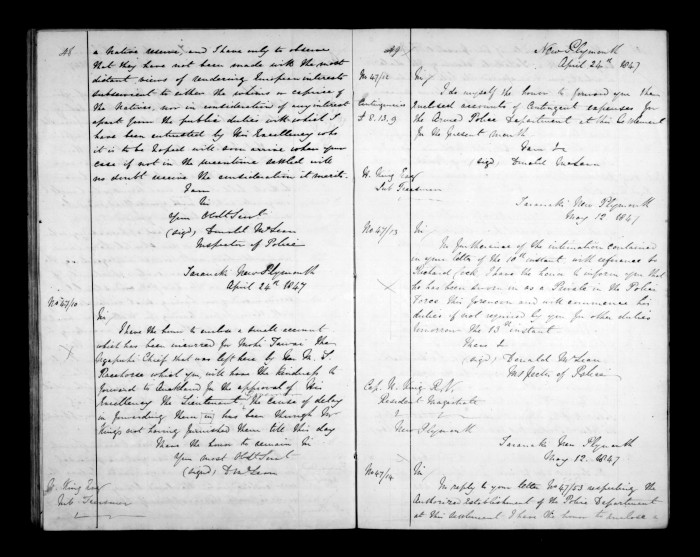 48
a Native reserve, and I have only to observe
that they have not been made with the most
distant views of rendering European interests
subservient to either the whims or caprice of
the Natives, nor in consideration of any interest
apart from the public duties with which I
have been entrusted by His Excellency who
it is to be hoped will soon arrive when your
case if not in the meantime settled will
no doubt receive the consideration it merits.
I am
Sir
Your Obdt Servt
(sigd) Donald McLean
Inspector of Police
Taranaki New Plymouth
April 24th 1847
No 47/10
Sir,
I have the honor to enclose a small account
which has been incurred for Mohi Tawai the
Ngapuhi Chief that was left here by the
what you will have the kindness to
forward to Auckland for the approval of His
Excellency the Lieutenant, the cause of delay
in forwarding them in has been through Mr
Kings not having furnished them till this day
I have the honor to remain Sir
Your most Obdt Servt
(sigd) D McLean
W. King Esq
Sub Treasurer
49
New Plymouth
April 24th 1847
No 47/12
Sir/
Contingencies
£ 8.13.9
I do myself the honor to forward you the
enclosed accounts of Contingent expenses for
the Armed Police Department at this Settlement
for the present month
I am &c
(sigd) Donald McLean
W. King Esq
Sub Treasurer
Taranaki New Plymouth
May 12 1847
No 47/13
Sir/
In furtherance of the intimation contained
in your letter of the 10th instant with reference to
Richard Cook I have the honor to inform you that
he has been sworn in as a Private in the Police
Force this forenoon and will commence his
duties if not required by you for other duties
tomorrow the 13th instant
I have &
(sigd) Donald McLean
Inspector of Police
Capt. H. King R.N.
Resident Magistrate
New Plymouth
Taranaki New Plymouth
May 12. 1847
No 47/14
Sir
In reply to your letter No 47/53 respecting the
Authorized establishment of the Police Department
at this settlement I have the honor to enclose a